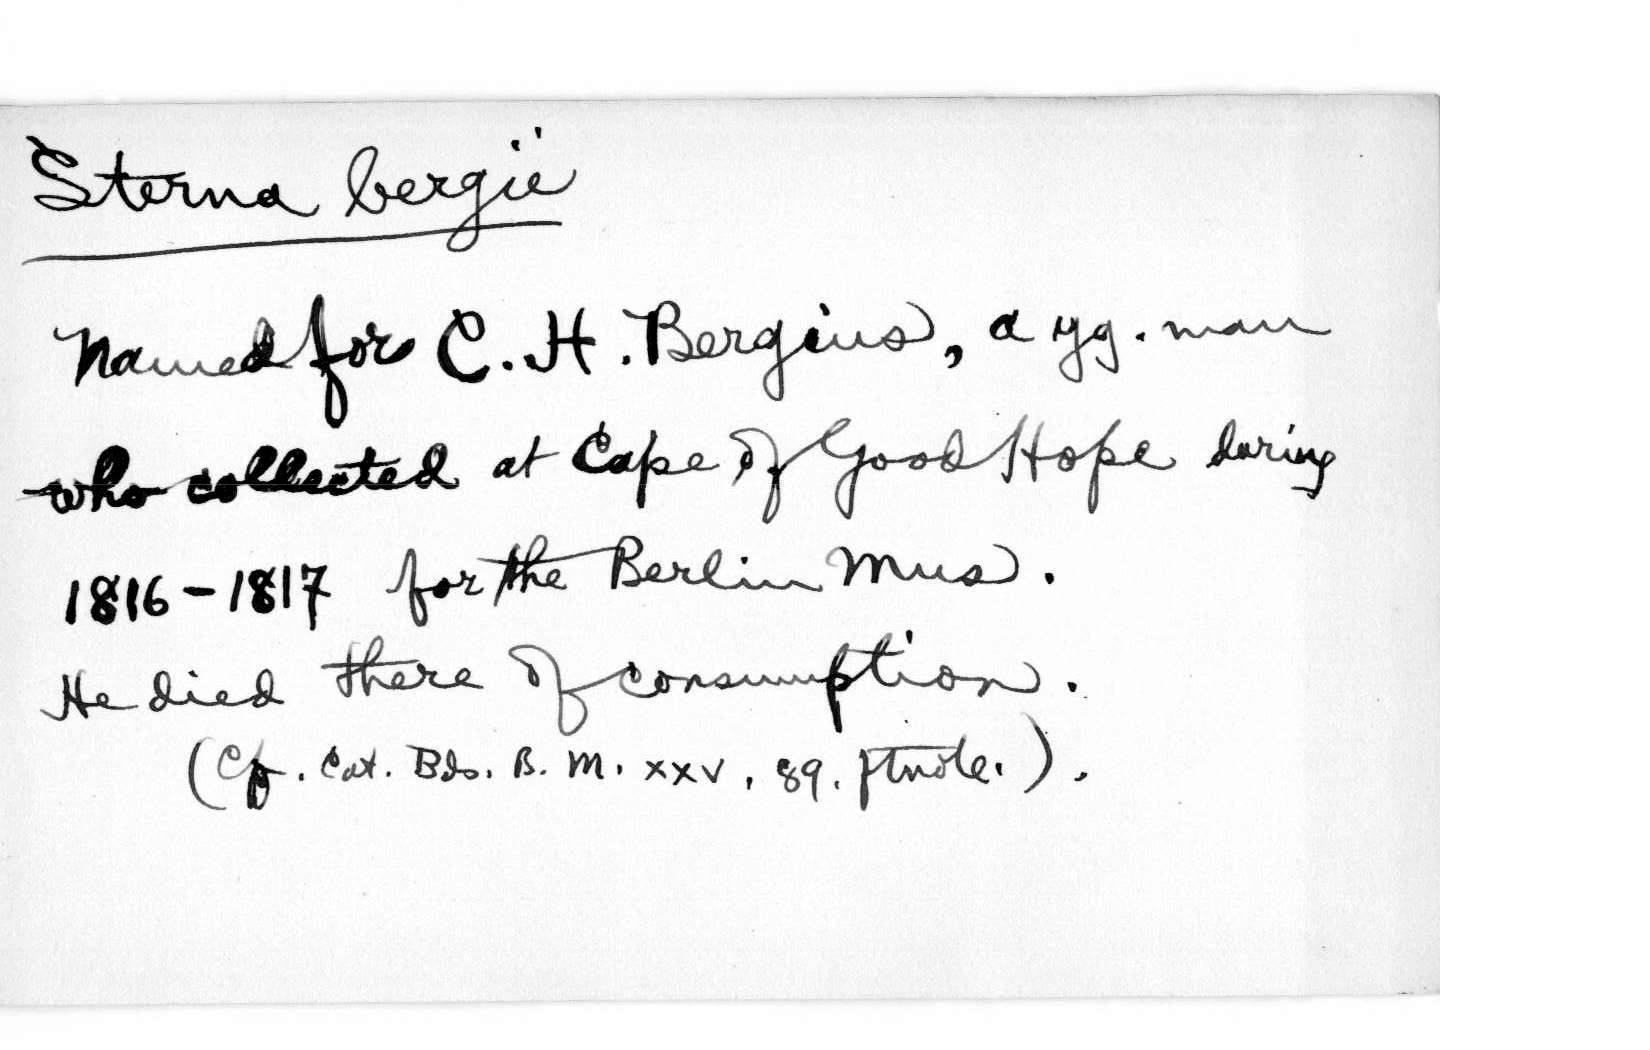 Sterna bergii
Named for C. H. Bergius, a yg. man
who collected at Cape of Good Hope during
1816-1817 for the Berlin Mus.
He died there of consumption.
(Cf. Cat. Bds. B. M. xxv, 89. ftnote.).